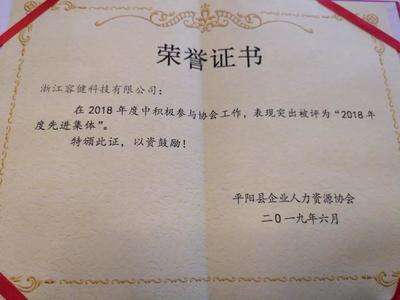 荣誉证书
浙江容健科技有限公司：
在2018年度中积极参与协会工作，表现突出被评为“2018年
度先进集体”。
特颁此证，以资鼓励！
平阳县企业人力资源协会
二〇一九年六月